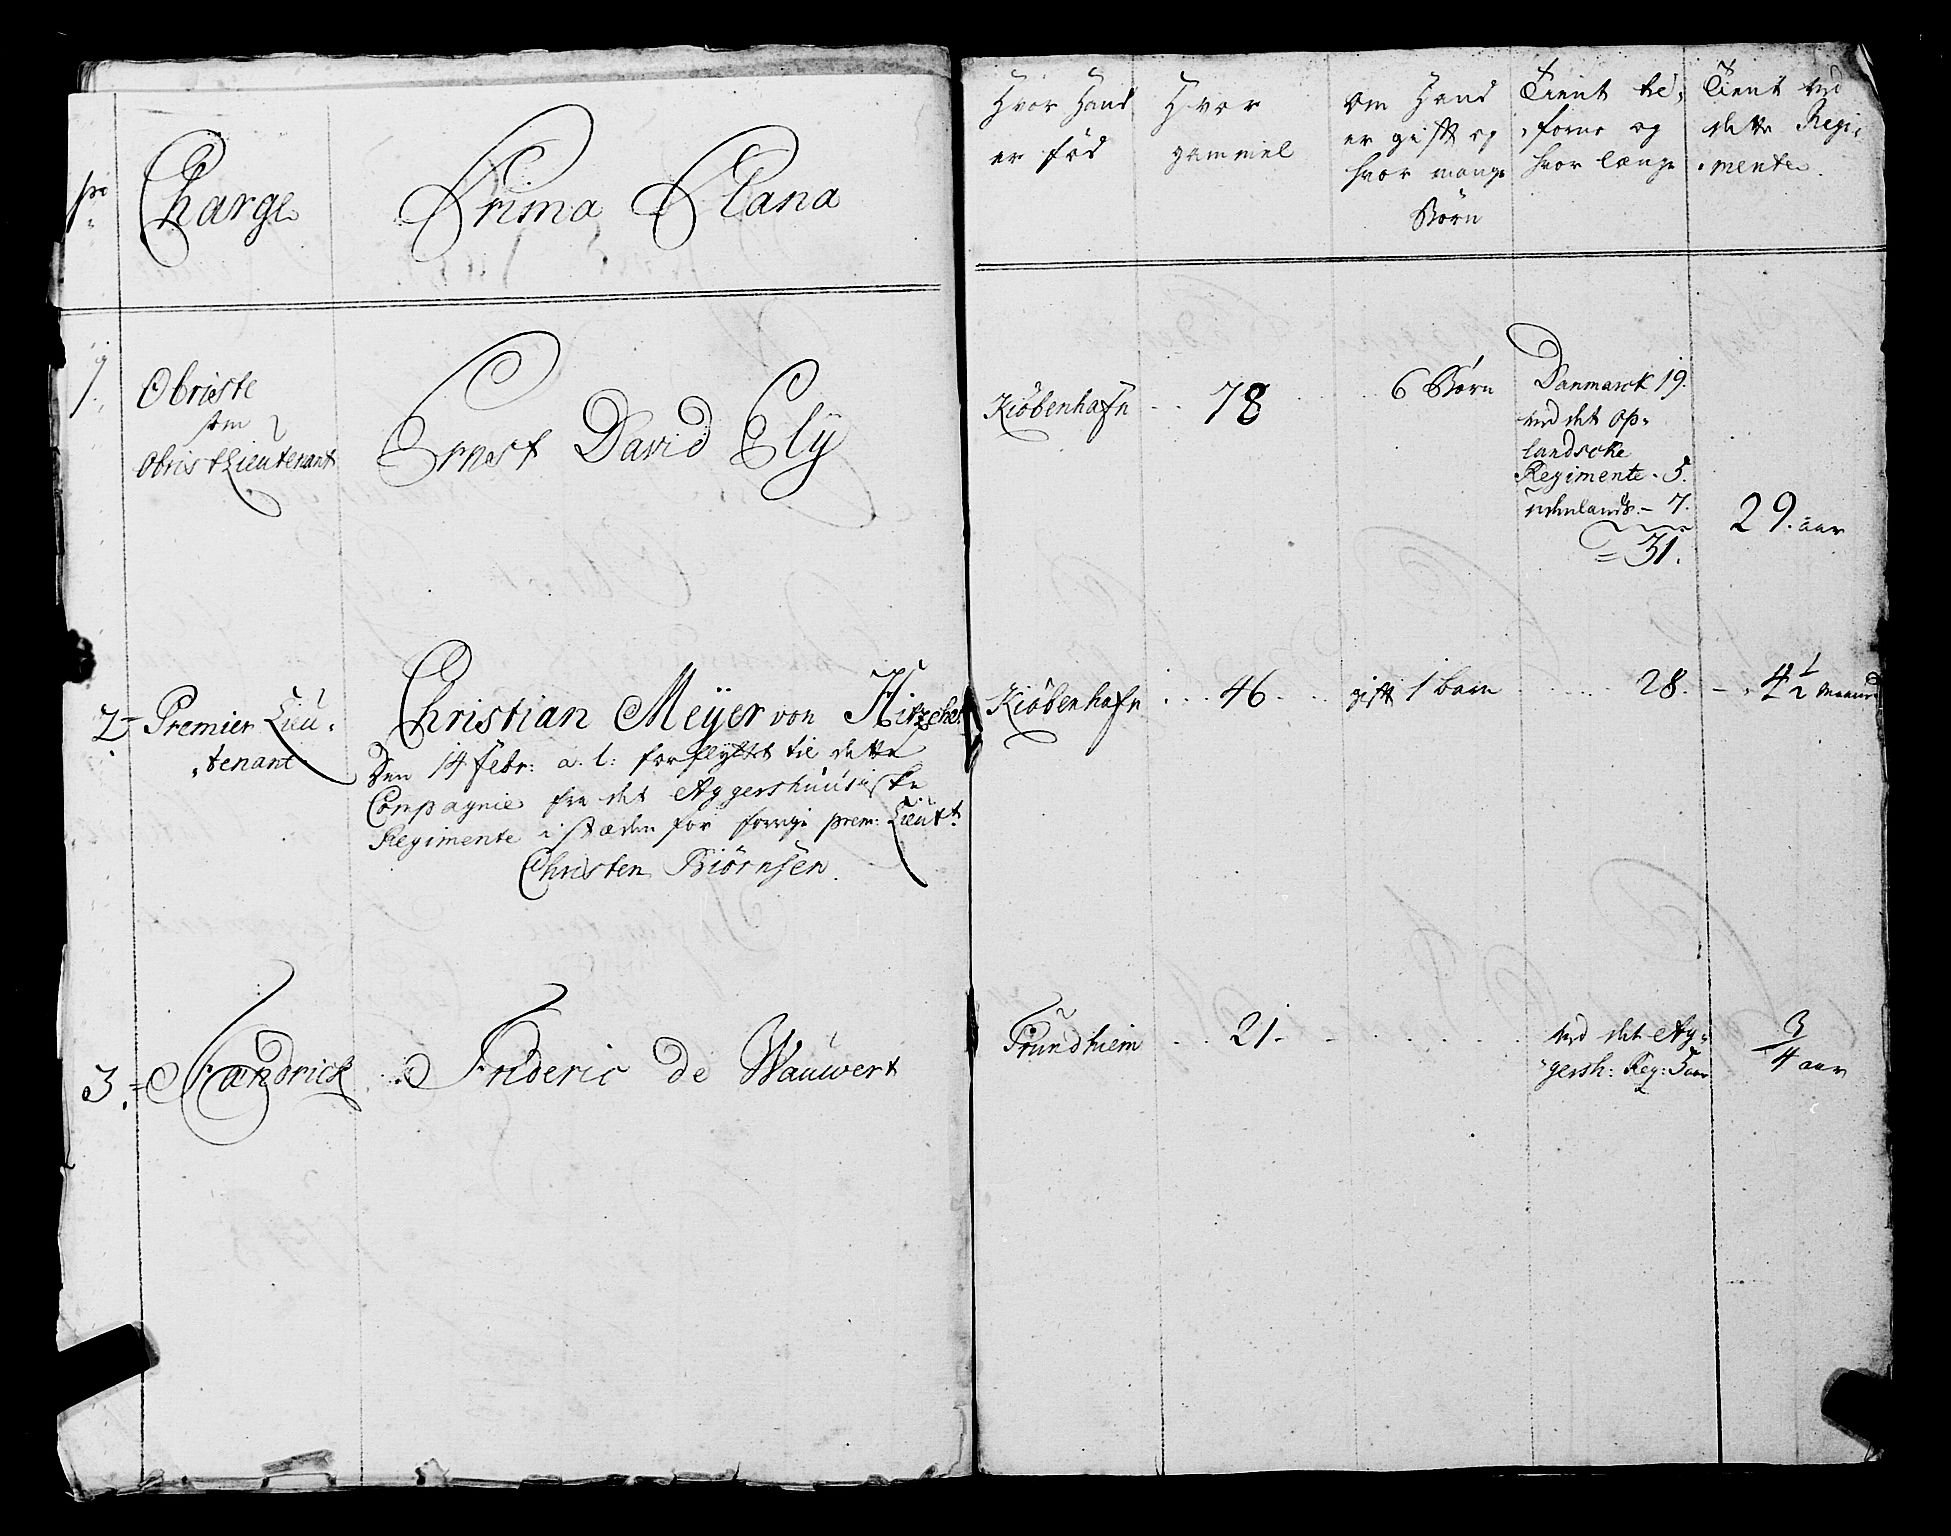 Charge
Prima Plana
Hvor Hand
er fød
Hvor
gammel
Om Hand
er gift og
hvor mange
Børn
Tient be,
,forne og
hvor længe
Tient ved
dette Regi,
,mente.
1.
Obriste
som
Obrist Lieutenant
Ernest David Ely
Kiøbenhafn
78
6 Børn
Danmarck 19.
ved det op,
landscke
Regimente. 5.
udenlands. 7.
= 31.
29. aar
2
Premier Lieu,
,tenant
Christian Meÿer von
Den 14 Febr: a. c: forflyttet til dette
Compagnie fra det Aggershuusiske
Regimente i stæden for forrige prem: Lieut:
Christen Biørnsen.
Kiøbenhafn
46
gift 1 barn
28.
4 1/2 maaned
3.
Fændrick
Frideric de Wauwert
Trundhiem
21.
ved det Ag,
,gersh: Reg:
3/4 aar